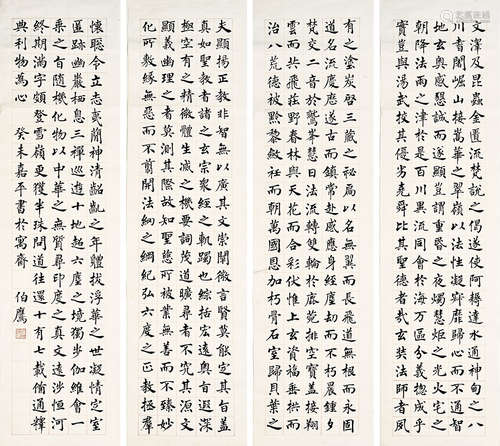 夫顯揚正教非智無以廣其文崇闡微言非賢莫能定其旨蓋
真如聖教者諸法之玄宗衆經之軌躅也綜括宏遠奧旨遐深
極空有之精微體生滅之機要詞茂道曠尋之者不究其源文
顯義幽理之者莫測其際故知聖慈所被業無善而不臻妙
化所敷緣無惡而不翦開法網之綱紀弘六度之正教拯羣
有之塗炭啓三藏之秘扃是以名無翼而長飛道無根而永固
道名流慶歷遂古而鎮常赴感應身經塵劫而不朽晨鐘夕
梵交二音於鷲峯慧日法流轉雙輪於鹿菀排空寶蓋接翔
雲而共飛莊野春林與天花而合彩伏惟上玄資福垂拱而
治八荒德被黔黎斂衽而朝萬國恩加朽骨石室歸貝葉之
文澤及昆蟲金匱流梵說之偈遂使阿耨達水通神甸之八
川耆闍崛山接嵩華之翠嶺竊以法性凝寂靡歸心而不通智
地玄奧感懇誠而遂顯豈謂重昏之夜燭慧炬之光火宅之
朝降法雨之澤於是百川異流同會於海萬區分義總成乎
實豈與湯武校其優劣堯舜比其聖德者哉玄奘法師者夙
懷聰令立志夷簡神清齠齔之年體拔浮華之世凝情定室
匿跡幽巖栖息三禪巡遊十地超六塵之境獨步迦維會一
乘之旨隨機化物以中華之無質尋印度之真文遠涉恒河
終期滿字頻登雪嶺更獲半珠問道往還十有七載備通釋
典利物為心 癸未嘉平書於寓齋 伯鷹